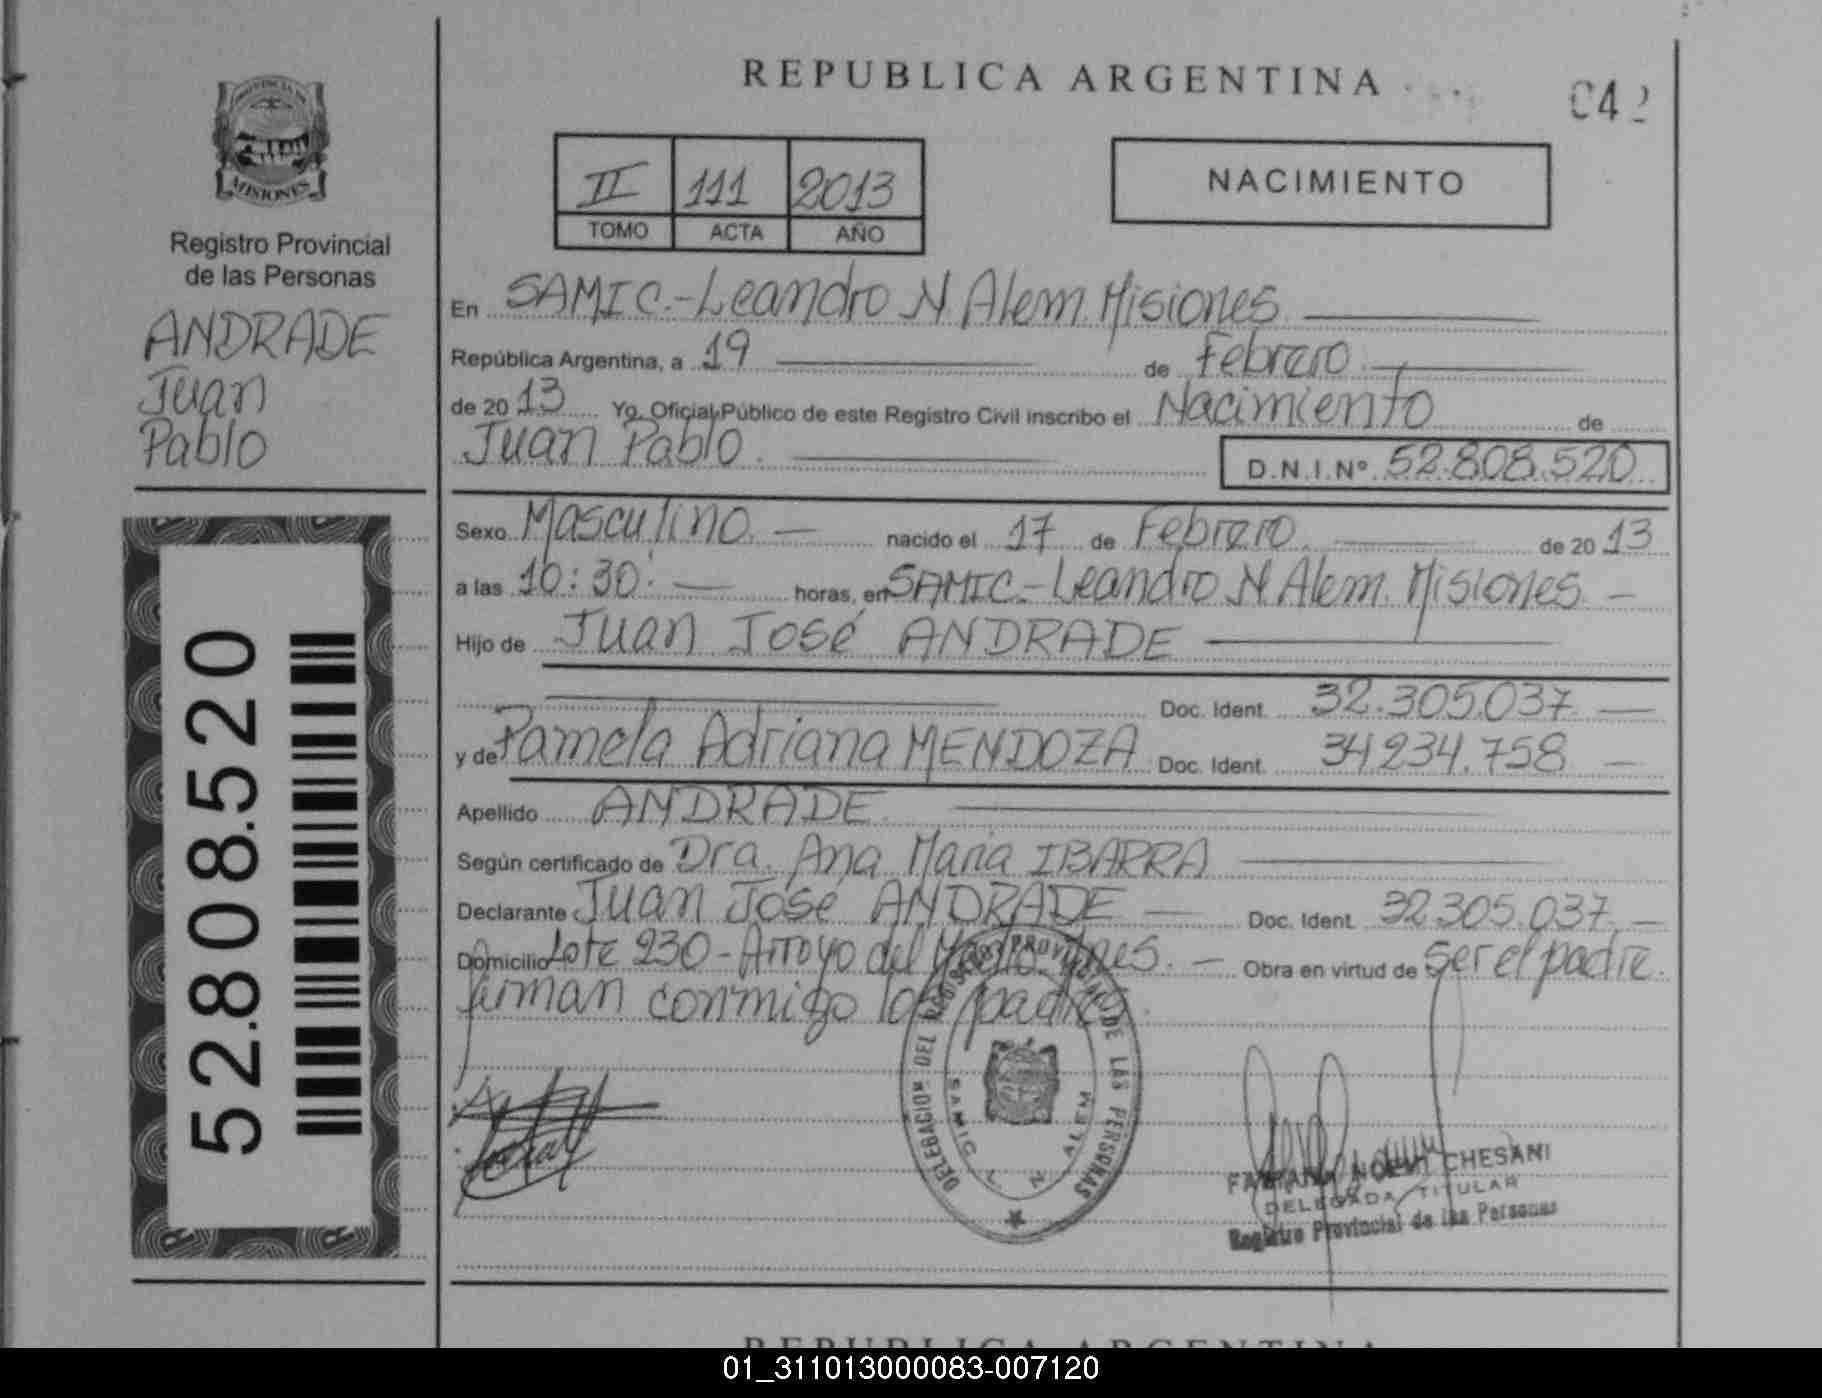 REPUBLICA ARGENTINA
042
PROVINCIA DE
MISIONES
Registro Provincial
de las Personas
ANDRADE
Juan
Pablo
52.808.520
II 111 2013
TOMO ACTA AÑO
NACIMIENTO
En SAMIC.-Leandro N Alem. Misiones
República Argentina, a 19 de Febrero
de 2013 Yo, Oficial Público de este Registro Civil inscribo el Nacimiento de
Juan Pablo. D.N.I.Nº 52.808.520
Sexo Masculino nacido el 17 de Febrero de 2013
a las 10:30 horas, en SAMIC.-Leandro N Alem. Misiones
Hijo de Juan José ANDRADE
Doc. Ident. 32.305.037
y de Pamela Adriana MENDOZA Doc. Ident. 34.234.758
Apellido ANDRADE
Según certificado de Dra. Ana Maria IBARRA
Declarante Juan José ANDRADE Doc. Ident. 32.305.037
Domicilio Lote 230 - Arroyo del Medio. Mnes. Obra en virtud de ser el padre.
Firman conmigo los padres.
DELEGACION DEL REGISTRO PROVINCIAL DE LAS PERSONAS
SAMIC L. N. ALEM
FABIANA NOEMI CHESANI
DELEGADA TITULAR
Registro Provincial de las Personas
REPUBLICA ARGENTINA
01_311013000083-007120